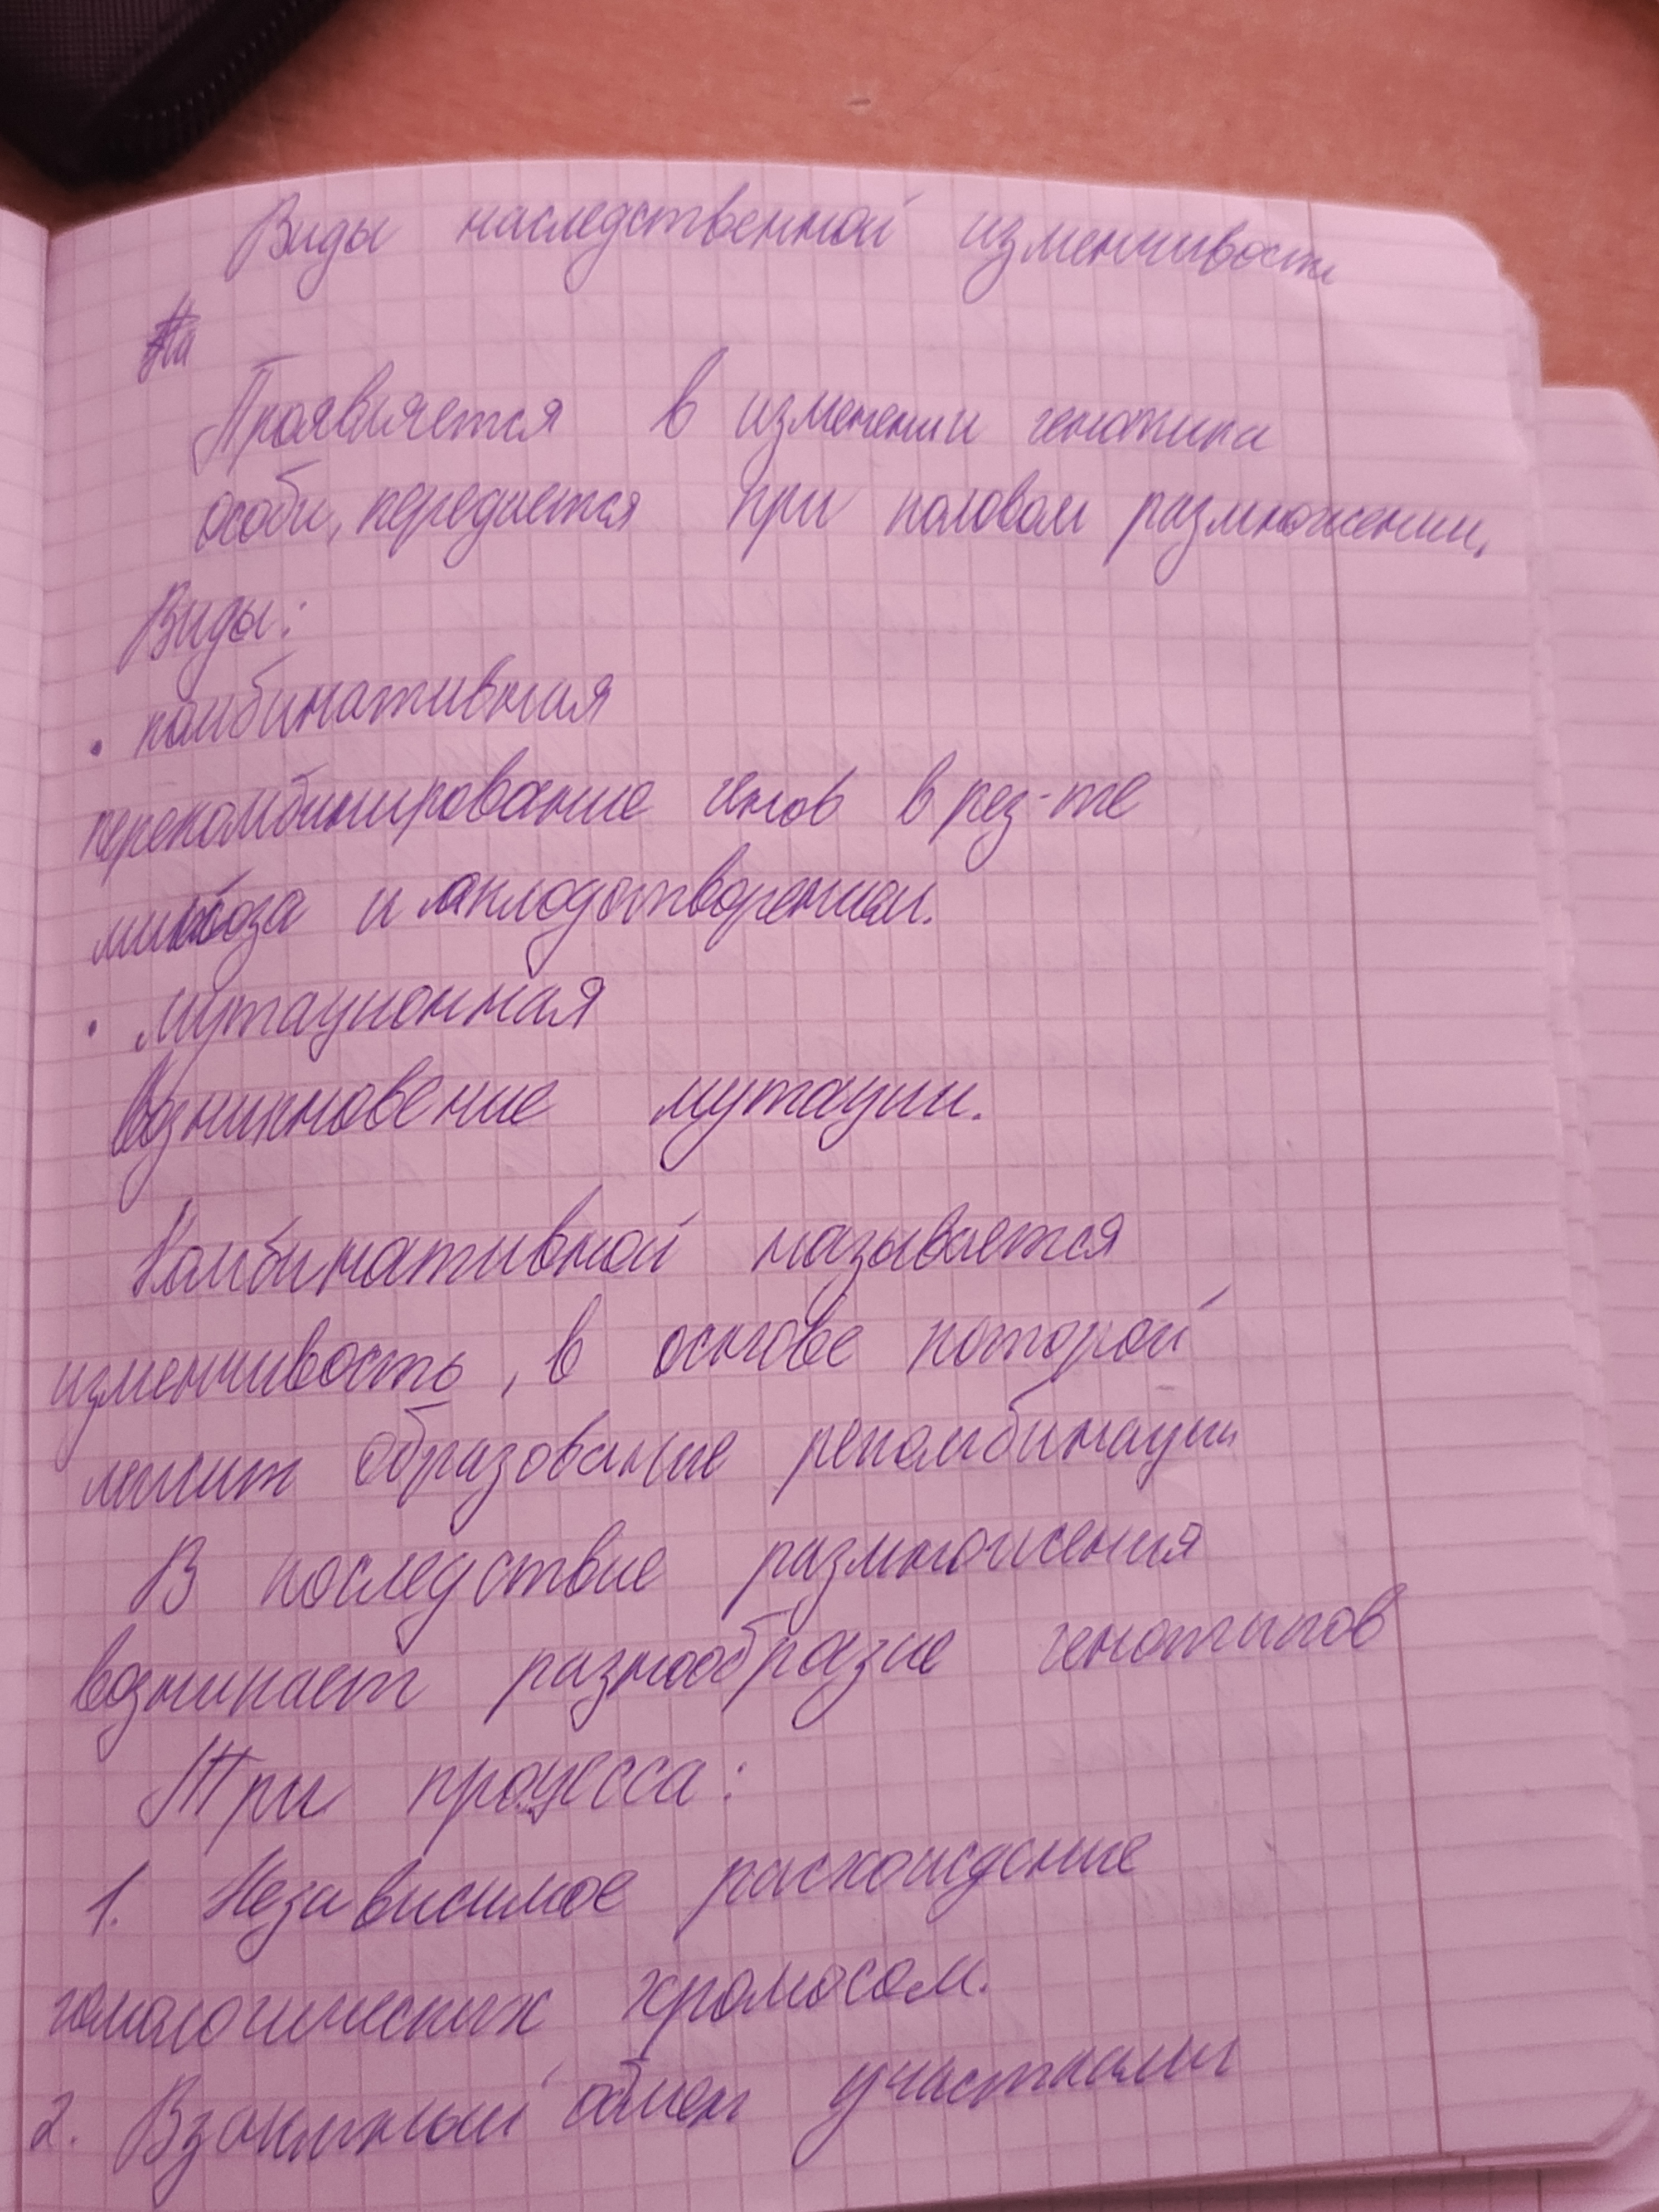 Виды наследственной изменчивости
Проявляется в изменении генотипа
особи, передается при половом размножении.
Виды:
• комбинативная
перекомбинирование генов в рез-те
и оплодотворении.
• мутационная
Возникновение мутации.
Комбинативной называется
изменчивость, в основе которой
лежит образование рекомбинации
В последствие размножения
возникает разнообразие генотипов
Три процесса:
1. Независимое расхождение
гомологических хромосом.
2. Взаимный обмен участками